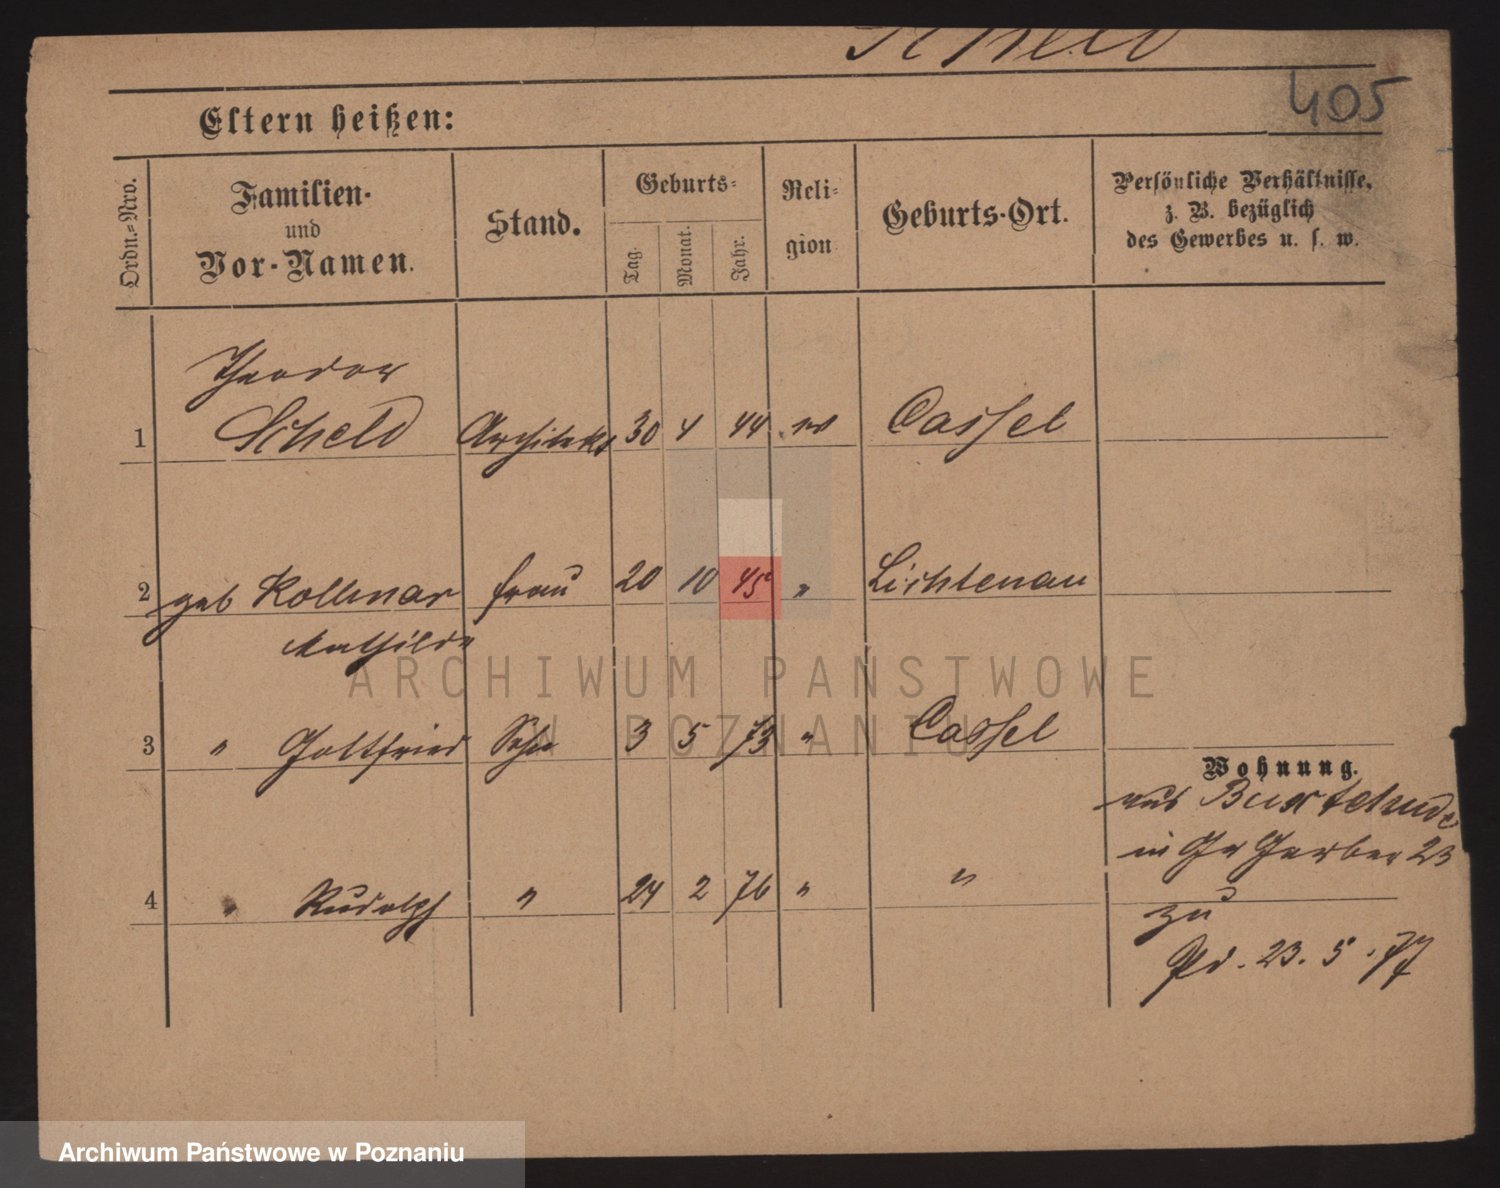 Scheld
405
Eltern heißen:
Ordn.=Nro.
Familien-
und
Vor-Namen.
Stand.
Geburts=
Tag.
Monat.
Jahr.
Reli-
gion
Geburts-Ort.
Persönliche Verhältnisse,
z. B. bezüglich
des Gewerbes u. s. w.
Theodor
1 Scheld Architekt 30 4 44 Cassel
2 geb Kollmar Frau 20 10 45 " Lichtenau
Mathilde
ARCHIWUM PAŃSTWOWE
W POZNANIU
3 " Gottfried Sohn 3 5 73 " Cassel
Wohnung.
aus Buxtehude
in Gr Gerber 23
4 " Rudolph " 24 2 76 " "
zu
23. 5. 77
Archiwum Państwowe w Poznaniu